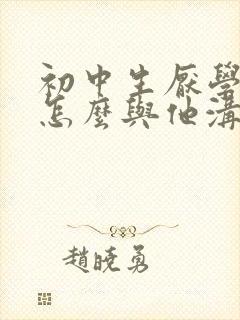 初中生厭學
怎麼與他溝
趙曉勇